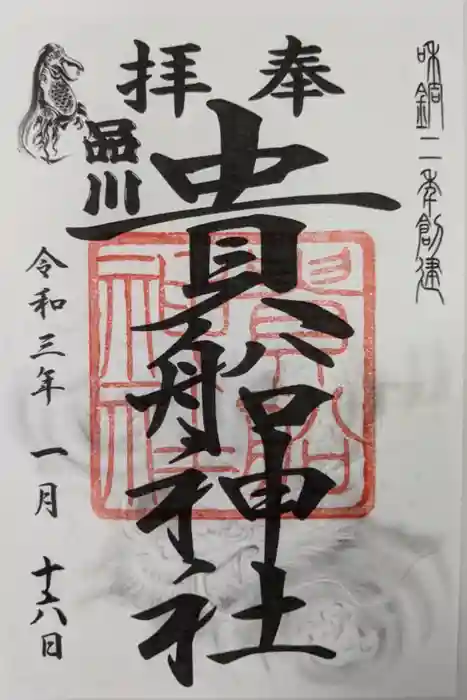 和銅二年創建
奉拝
品川
貴船神社
令和三年 一月 十六日
貴船
神社